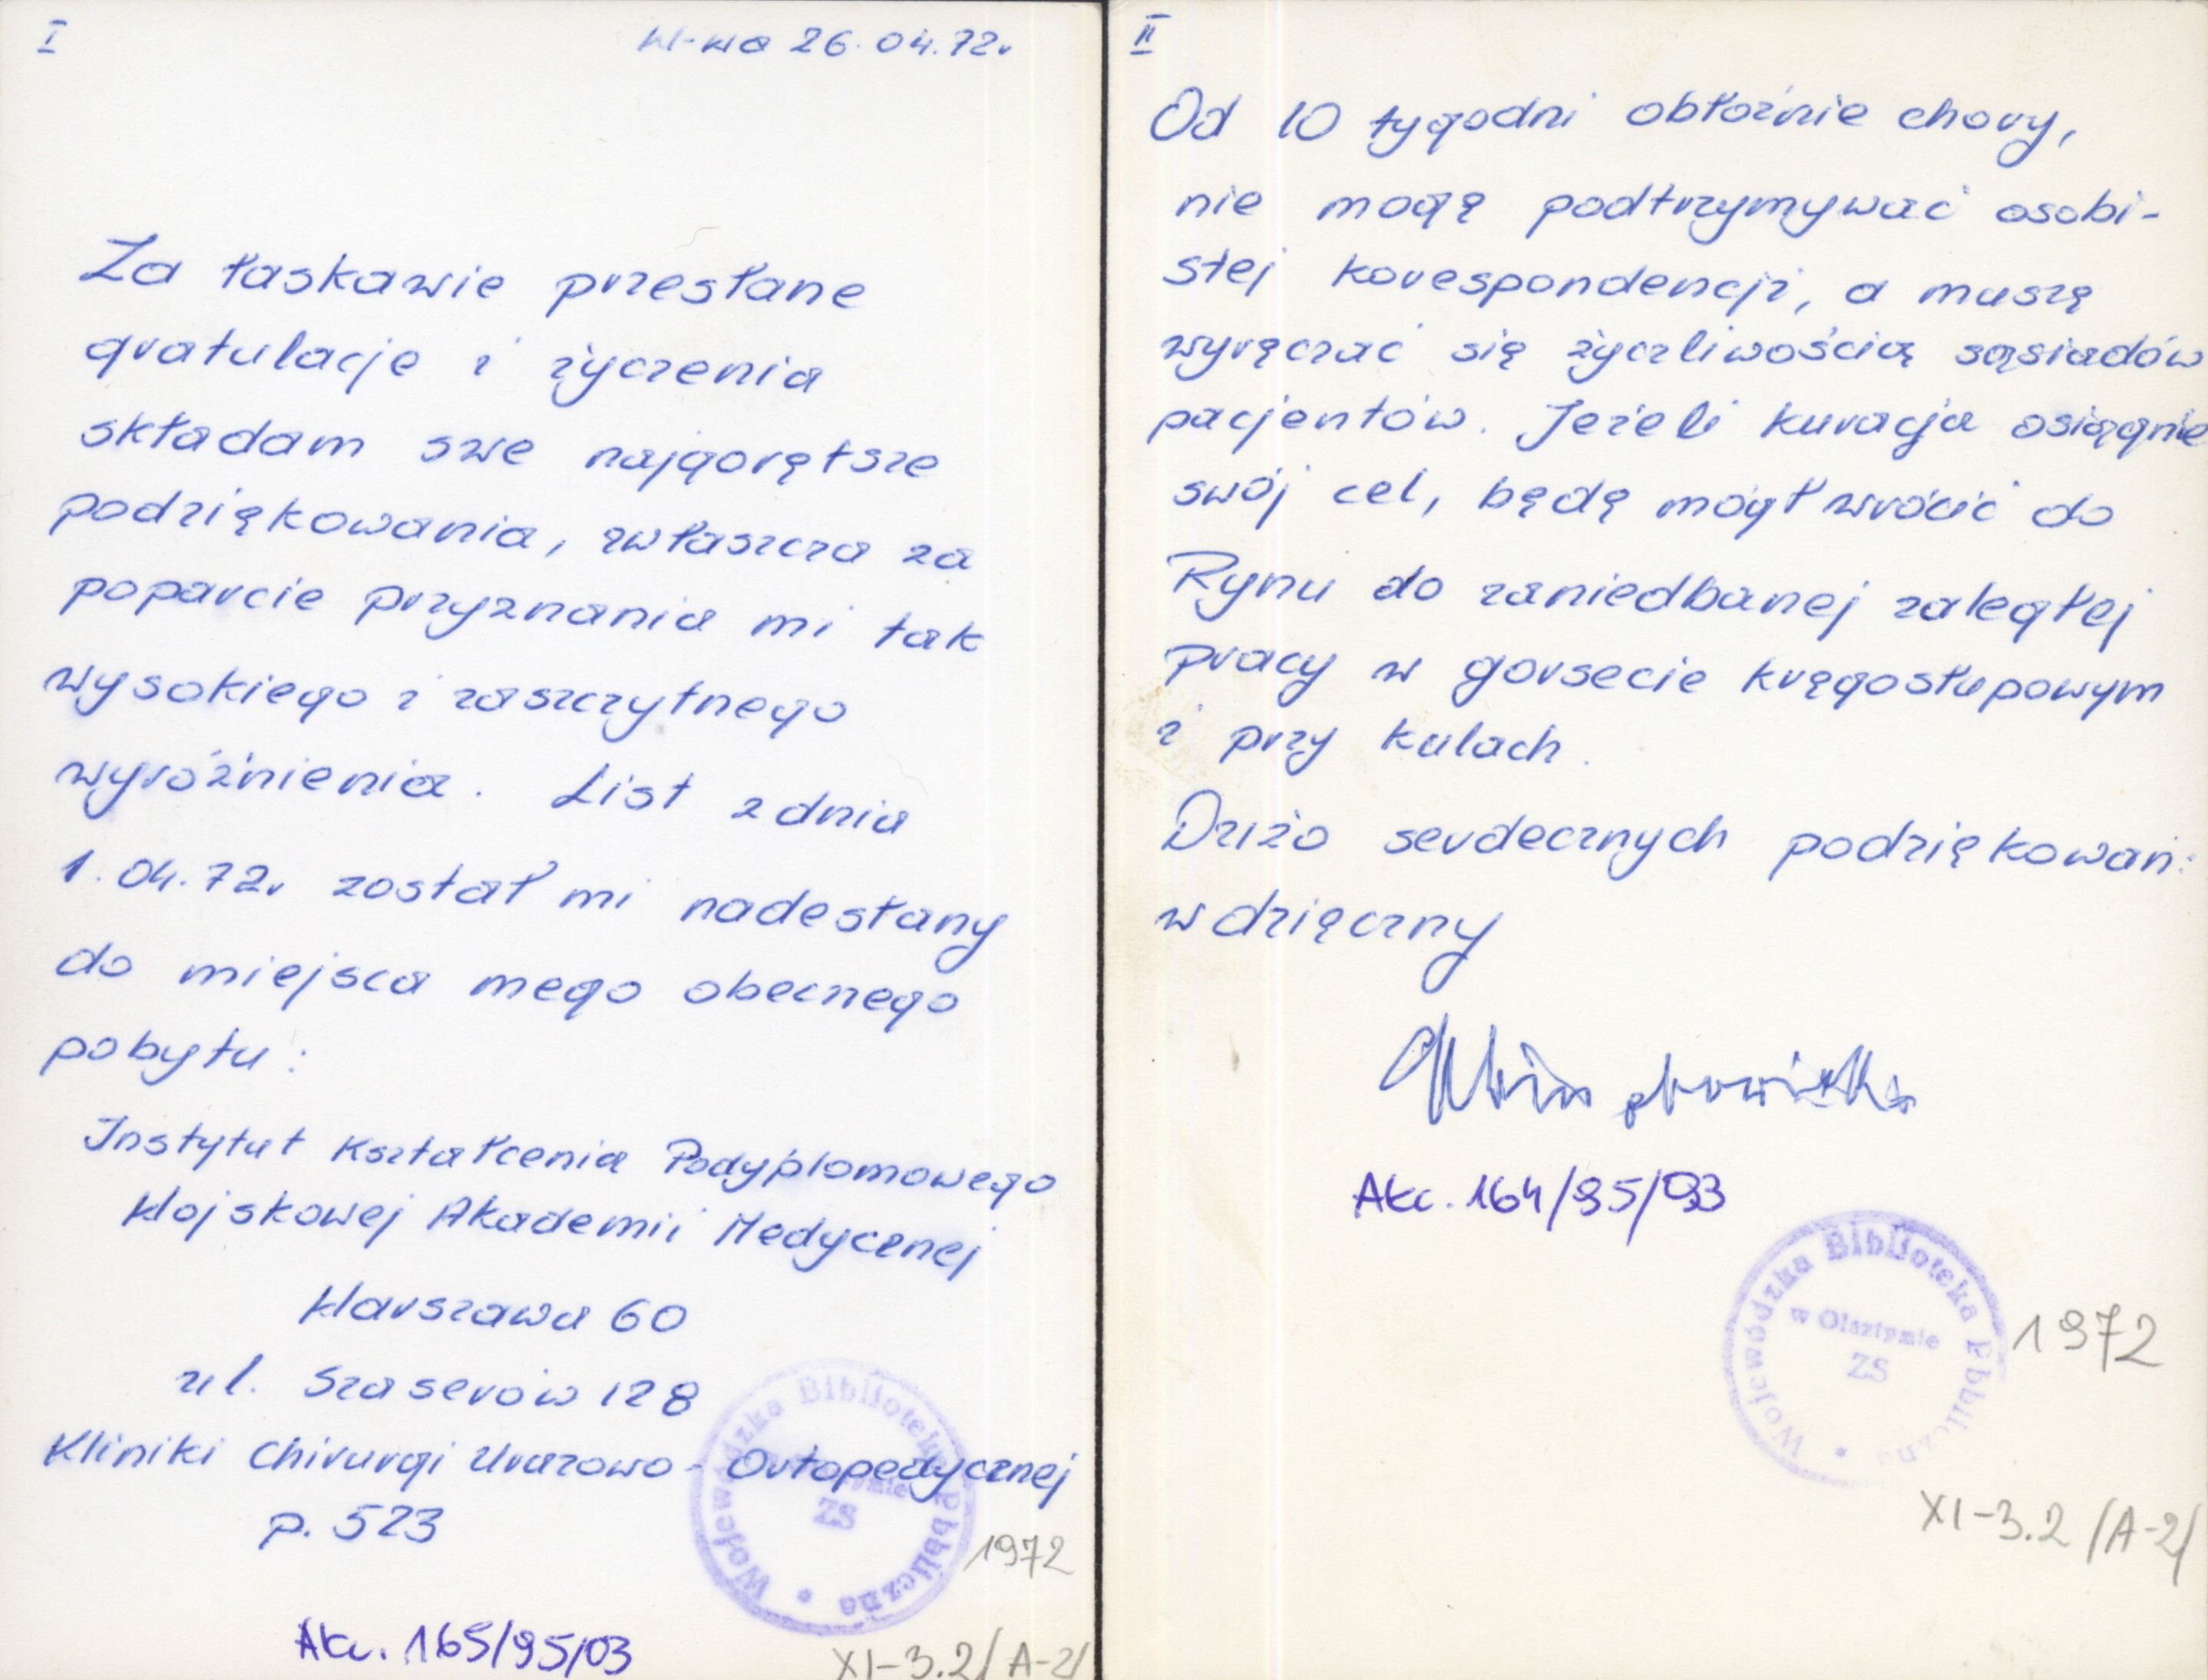 I
W-wa 26.04.72r
Za łaskawie przesłane
gratulacje i życzenia
składam swe najgorętsze
podziękowania, zwłaszcza za
poparcie przyznania mi tak
wysokiego i zaszczytnego
wyróżnienia. List z dnia
1.04.72r został mi nadesłany
do miejsca mego obecnego
pobytu:
Instytut Kształcenia Podyplomowego
Wojskowej Akademii Medycznej
Warszawa 60
ul. Szaserów 128
Kliniki Chirurgi Urazowo-Ortopedycznej
p. 523
Wojewódzka Biblioteka Pbbliczna
ZS
1972
Akc. 165/95/03
XI-3.2/A-2/
II
Od 10 tygodni obłożnie chory,
nie mogę podtrzymywać osobi-
stej korespondencji, a muszę
wyręczać się życzliwością sąsiadów
pacjentów. Jeżeli kuracja osiągnie
swój cel, będę mógł wrócić do
Rynu do zaniedbanej zaległej
pracy w gorsecie kręgosłupowym
i przy kulach.
Dużo serdecznych podziękowań:
wdzięczny
Akc. 164/95/03
Wojewódzka Biblioteka Pbbliczna
w Olsztynie
ZS
1972
XI-3.2/A-2/